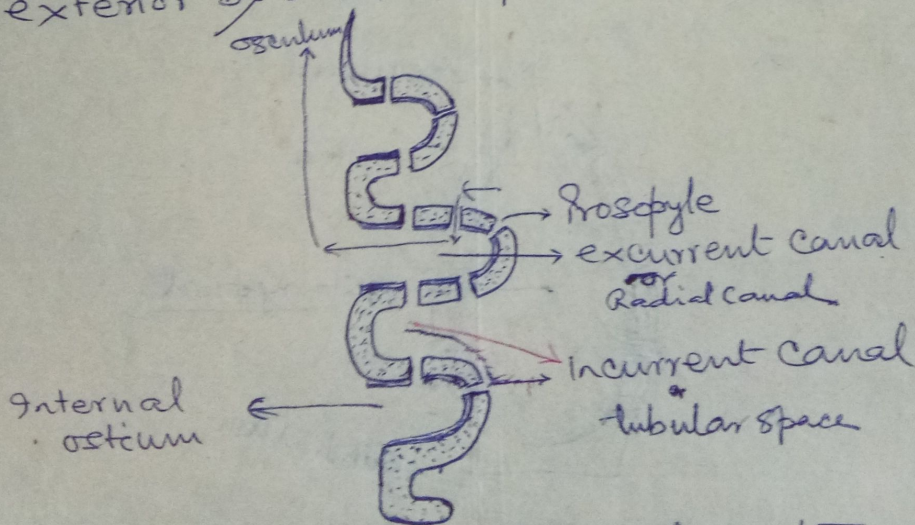 exterior
osculum
Prosopyle
excurrent canal
or
Radial canal
Incurrent canal
or
tubular space
Internal
ostium